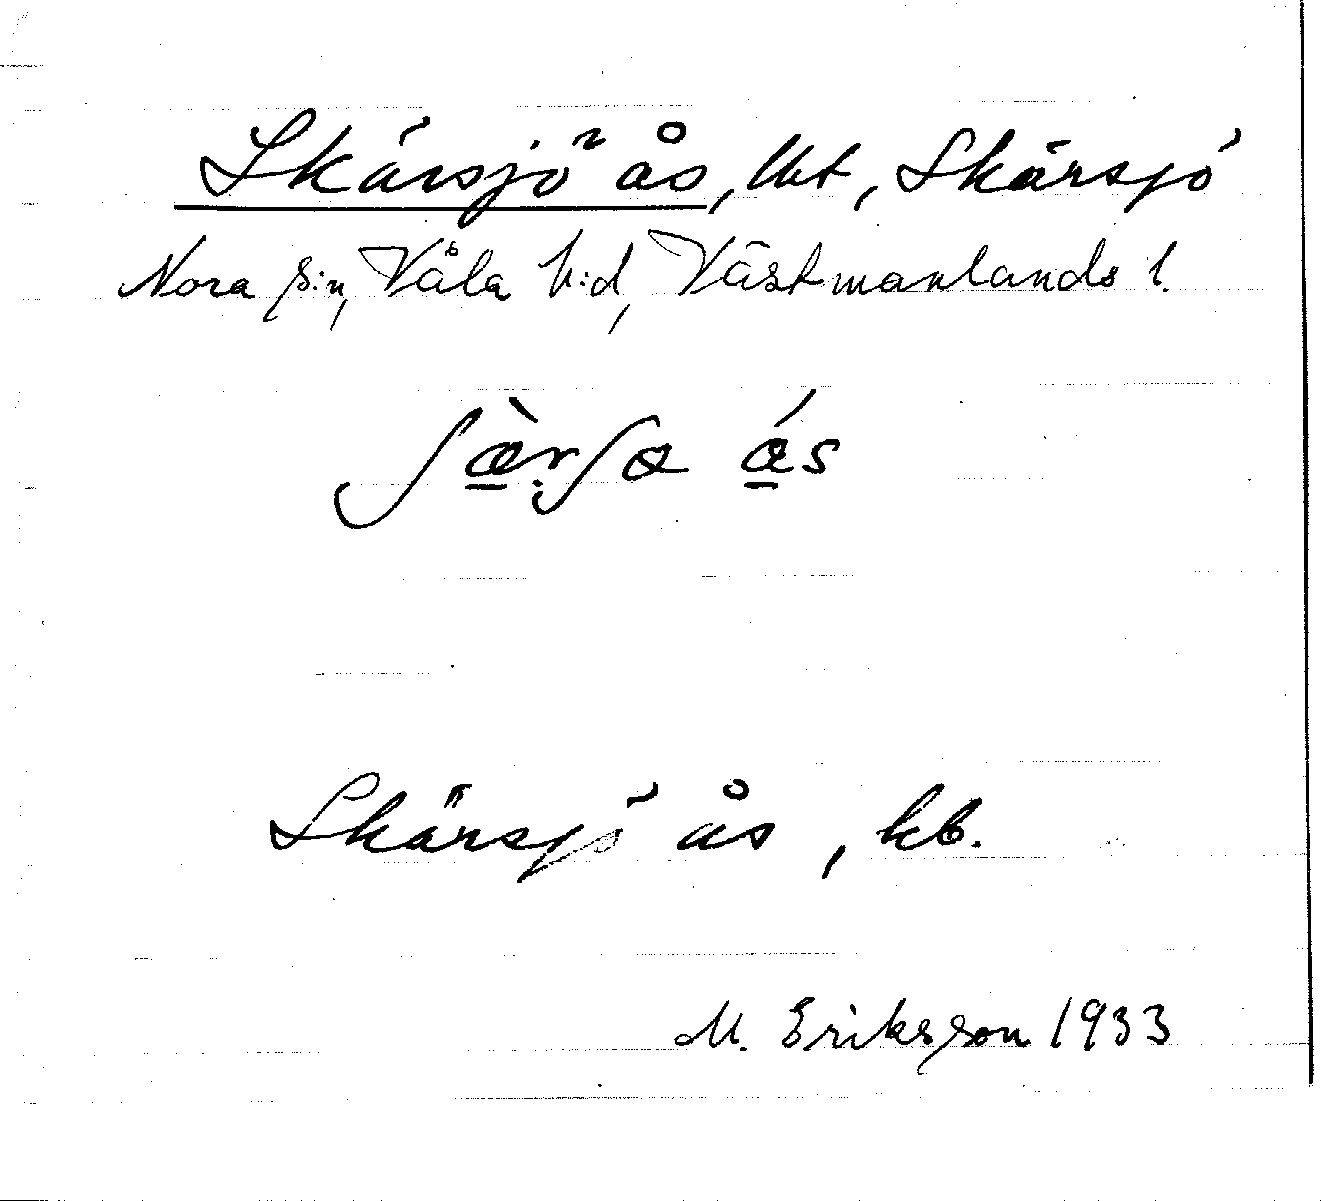 Skärsjö ås, lht, Skärsjö
Nora s:n, Våla h:d, Västmanlands l.
ʃæ̀rʃa ås
Skärsjö ås, kb.
M. Eriksson 1933